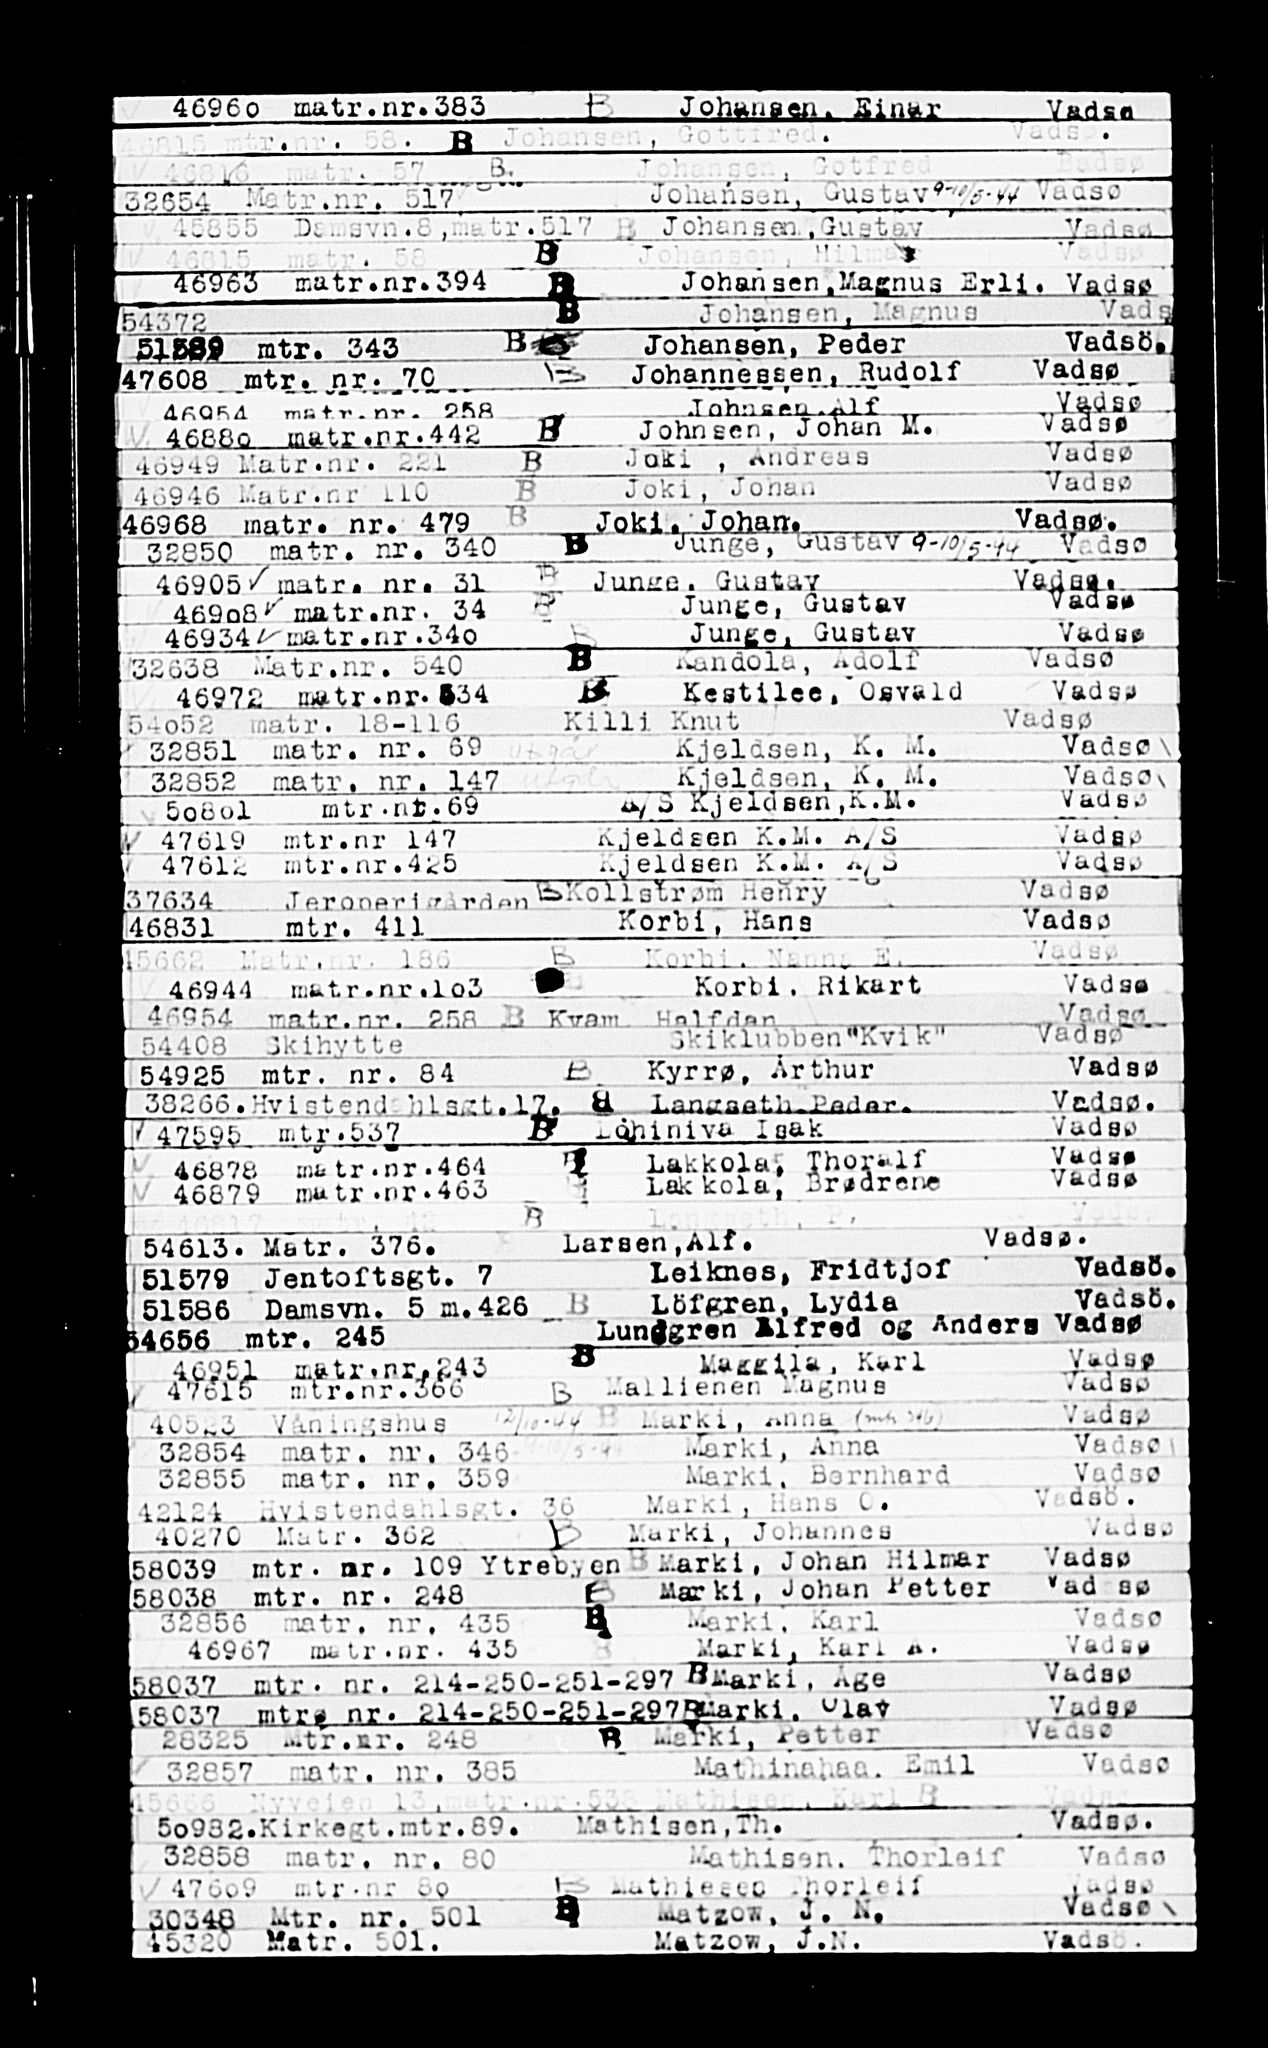 46960 matr.nr.383 B Johansen, Einar Vadsø
46815 mtr.nr. 58. B Johansen, Gottfred. Vadsø.
46816 matr. 57 B. Johansen, Gotfred Badsø
32654 Matr.nr. 517 Johansen, Gustav 9-10/5-44 Vadsø
45855 Damsvn.8,matr.517 B Johansen,Gustav Vadsø
46815 matr. 58 B Johansen, Hilmar Vadsø
46963 matr.nr.394 B Johansen,Magnus Erli. Vadsø
54372 B Johansen, Magnus Vads
51589 mtr. 343 B Johansen, Peder Vadsö.
47608 mtr. nr. 70 B Johannessen, Rudolf Vadsø
46954 matr.nr. 258 Johnsen,Alf Vadsø
46880 matr.nr.442 B Johnsen, Johan M. Vadsø
46949 Matr.nr. 221 B Joki , Andreas Vadsø
46946 Matr.nr 110 B Joki, Johan Vadsø
46968 matr. nr. 479 B Joki, Johan. Vadsø.
32850 matr. nr. 340 B Junge, Gustav 9-10/5-44 Vadsø
46905 ✓ matr. nr. 31 B Junge, Gustav Vadsø.
46908 ✓ matr.nr. 34 B Junge, Gustav Vadsø
46934 ✓ matr.nr.340 B Junge, Gustav Vadsø
32638 Matr.nr. 540 B Kandola, Adolf Vadsø
46972 matr.nr. 534 B Kestilee, Osvald Vadsø
54052 matr. 18-116 Killi Knut Vadsø
32851 matr. nr. 69 utgår Kjeldsen, K. M. Vadsø
32852 matr. nr. 147 utgår Kjeldsen, K. M. Vadsø
50801 mtr.nr.69 A/S Kjeldsen,K.M. Vadsø
47619 mtr.nr 147 Kjeldsen K.M. A/S Vadsø
47612 mtr.nr.425 Kjeldsen K.M. A/S Vadsø
37634 Jeronerigården B Kollstrøm Henry Vadsø
46831 mtr. 411 Korbi, Hans Vadsø
45662 Matr.nr. 186 B Korbi, Nanna E. Vadsø
46944 matr.nr.103 Korbi, Rikart Vadsø
46954 matr.nr. 258 B Kvam Halfdan Vadsø
54408 Skihytte Skiklubben"Kvik" Vadsø
54925 mtr. nr. 84 B Kyrrø, Arthur Vadsø
38266.Hvistendahlsgt.17. B Langseth.Peder. Vadsø.
47595 mtr.537 B Lahiniva Isak Vadsø
46878 matr.nr.464 B Lakkola, Thoralf Vadsø
46879 matr.nr.463 Lakkola, Brødrene Vadsø
46817 matr. 42 B Langseth, P. Vadsø
54613. Matr. 376. Larsen,Alf. Vadsø.
51579 Jentoftsgt. 7 Leiknes, Fridtjof Vadsö.
51586 Damsvn. 5 m.426 B Löfgren, Lydia Vadsö.
54656 mtr. 245 Lundgren Alfred og Anders Vadsø
46951 matr.nr.243 B Maggila, Karl Vadsø
47615 mtr.nr.366 B Mallienen Magnus Vadsø
40523 Våningshus 12/10-44 B Marki, Anna (mtr 346) Vadsø
32854 matr. nr. 346 9-10/5-44 Marki, Anna Vadsø
32855 matr. nr. 359 Marki, Bernhard Vadsø
42124 Hvistendahlsgt. 36 Marki, Hans O. Vadsö.
40270 Matr. 362 B Marki, Johannes Vadsø
58039 mtr. nr. 109 Ytrebyen B Marki, Johan Hilmar Vadsø
58038 mtr. nr. 248 B Marki, Johan Petter Vadsø
32856 matr. nr. 435 B Marki, Karl Vadsø
46967 matr.nr. 435 B Marki, Karl A. Vadsø
58037 mtr. nr. 214-250-251-297 B Marki, Age Vadsø
58037 mtrø nr. 214-250-251-297 B Marki, Olav Vadsø
28325 Mtr.nr. 248 B Marki, Petter Vadsø
32857 matr. nr. 385 Mathinahaa. Emil Vadsø
45666 Nyveien 13,matr.nr.538 Mathisen, Karl B Vadsø
50982.Kirkegt.mtr.89. Mathisen,Th. Vadsø.
32858 matr. nr. 80 Mathisen. Thorleif Vadsø
47609 mtr.nr 80 B Mathiesen Thorleif Vadsø
30348 Mtr. nr. 501 B Matzow, J. N. Vadsø
45320 Matr. 501. Matzow, J.N. Vadsö.